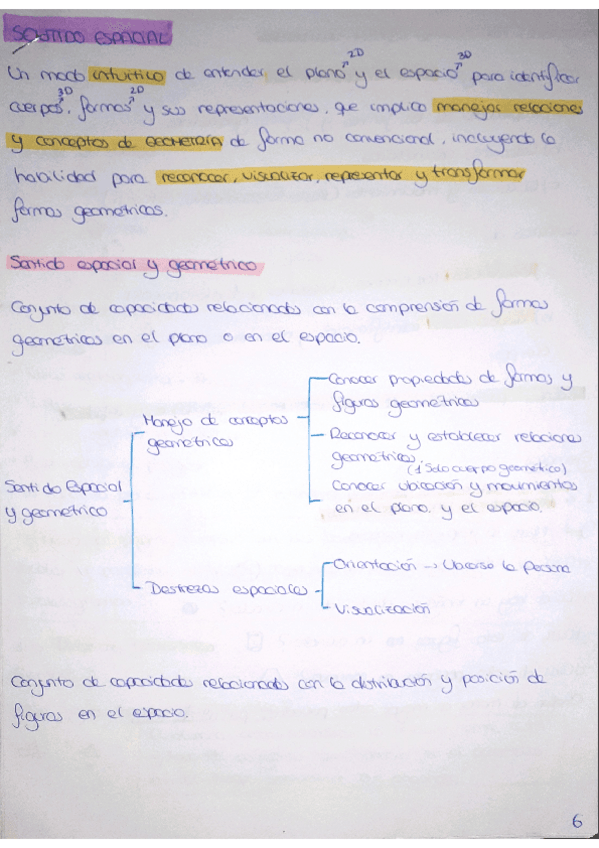 SENTIDO ESPACIAL
Un modo intuitivo de entender el plano↗2D y el espacio↗3D para identificar
cuerpos↗3D, formas↗2D y sus representaciones, que implica manejar relaciones
y conceptos de GEOMETRÍA de forma no convencional, incluyendo la
habilidad para reconocer, visualizar, representar y transformar
formas geométricas.
Sentido espacial y geométrico
Conjunto de capacidades relacionadas con la comprensión de formas
geométricas en el plano o en el espacio.
Sentido Espacial
y geométrico
Manejo de conceptos
geométricos
Conocer propiedades de formas y
figuras geométricas
Reconocer y establecer relaciones
geométricas.
(1 Solo cuerpo geométrico)
Conocer ubicación y movimientos
en el plano y el espacio.
Destrezas espaciales
Orientación → Ubicarse la
Visualización
Conjunto de capacidades relacionadas con la distribución y posición de
figuras en el espacio.
6